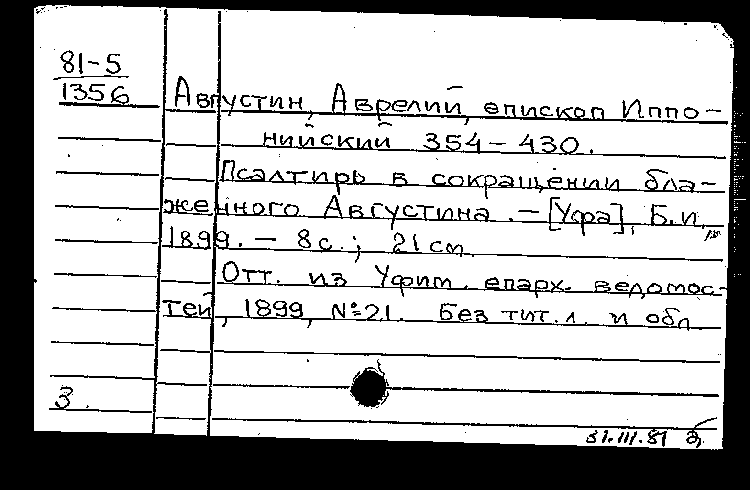 81-5
1356
Августин, Аврелий, епископ Иппо-
нийский 354-430.
Псалтирь в сокращении бла-
женного Августина. - [Уфа], Б.и.,
1899. - 8 с.; 21 см.
Отт. из Уфим. епарх. ведомос-
тей, 1899, №21. Без тит. л. и обл.
3.
31.III.81